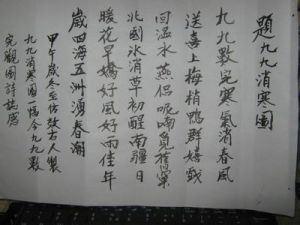 題九九消寒圖
九九數完寒氣消春風
送喜上梅梢鴨群嬉戲
回溫水燕侶呢喃覓舊窠
北國冰消草初醒南疆日
暖花早嬌好風好雨佳年
歲四海五洲湧春潮
甲午歲冬至仿效古人製
九九消寒圖一幅今九九數
完觀圖詩誌感